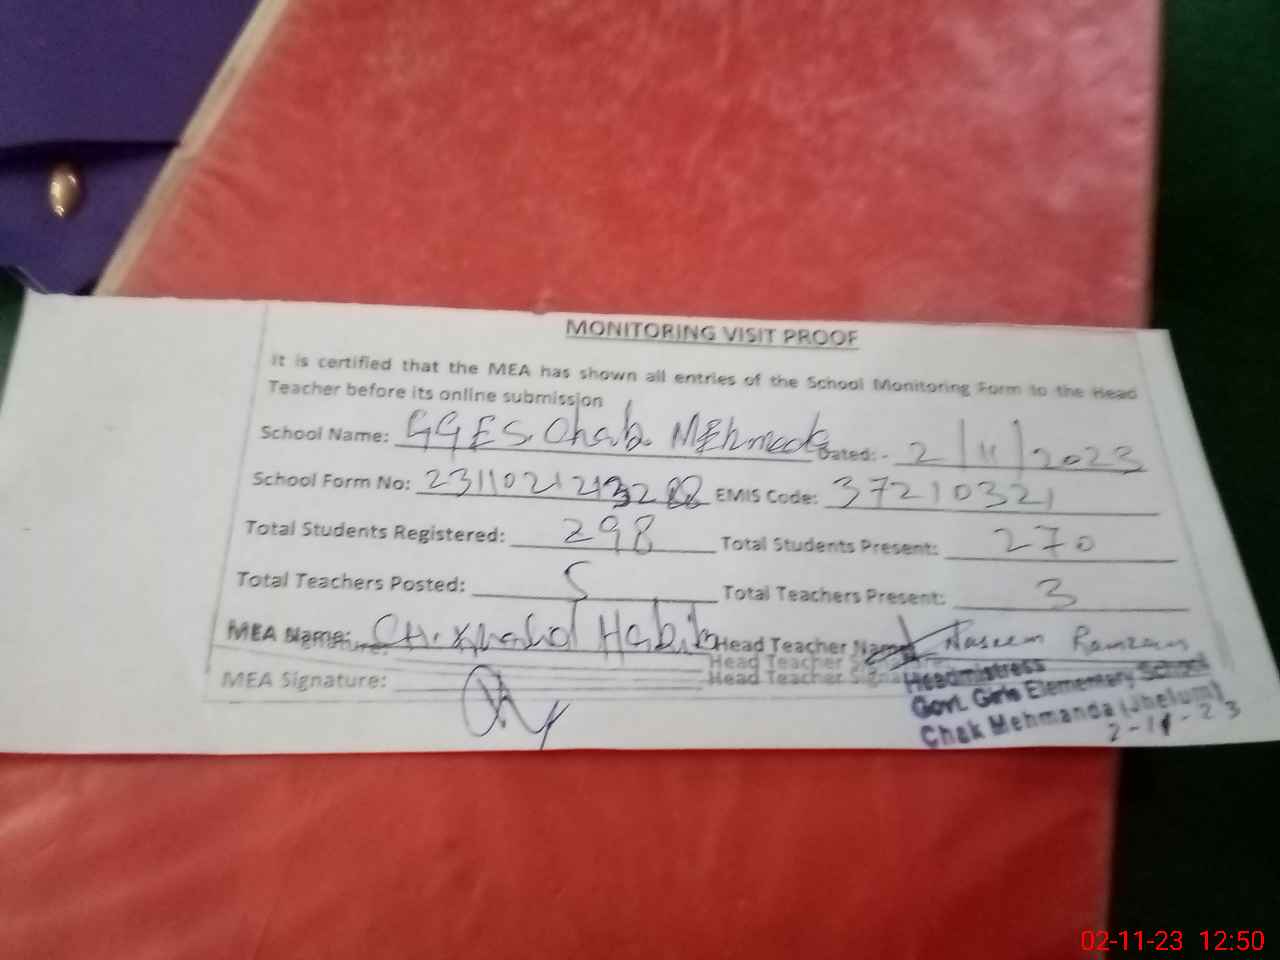 MONITORING VISIT PROOF
It is certified that the MEA has shown all entries of the School Monitoring Form to the Head
Teacher before its online submission
School Name: GGES. Chab. Dated: - 2/11/2023
School Form No: EMIS Code: 37210321
Total Students Registered: 298 Total Students Present: 270
Total Teachers Posted: 5 Total Teachers Present: 3
MEA Name: Ch. Habib Head Teacher Name Naseem Ramzan
Head Teacher
MEA Signature: Head Teacher
Headmistress
Govt. Girls Elementary School
Chak Mehmanda (Jhelum)
2-11-23
02-11-23 12:50